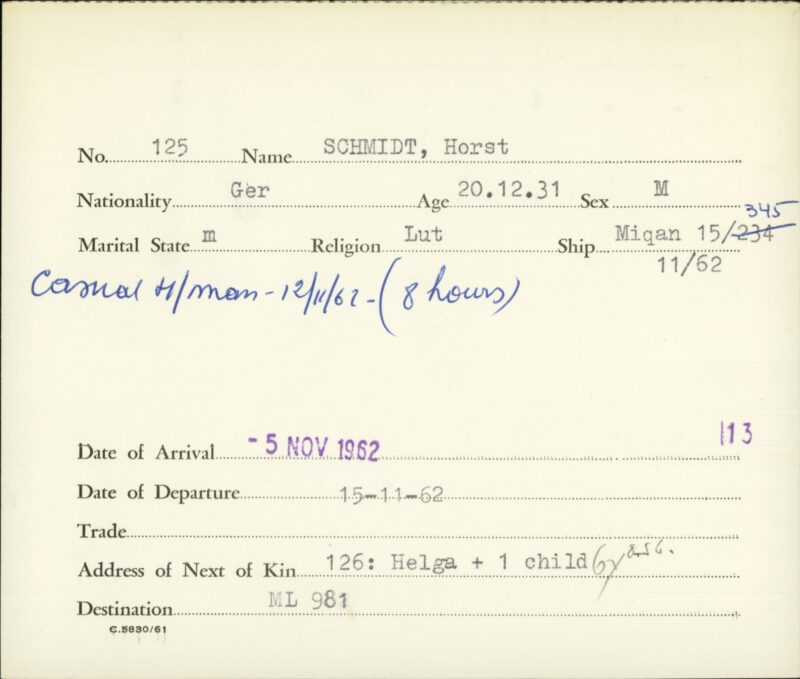 No. 125 Name SCHMIDT, Horst
Nationality Ger Age 20.12.31 Sex M
345
Marital State m Religion Lut Ship Miqan 15/234
11/62
Casual H/man - 12/11/62 - (8 hours)
113
Date of Arrival - 5 NOV 1962
Date of Departure 15-11-62
Trade
Address of Next of Kin 126: Helga + 1 child
Destination ML 981
C.5830/61